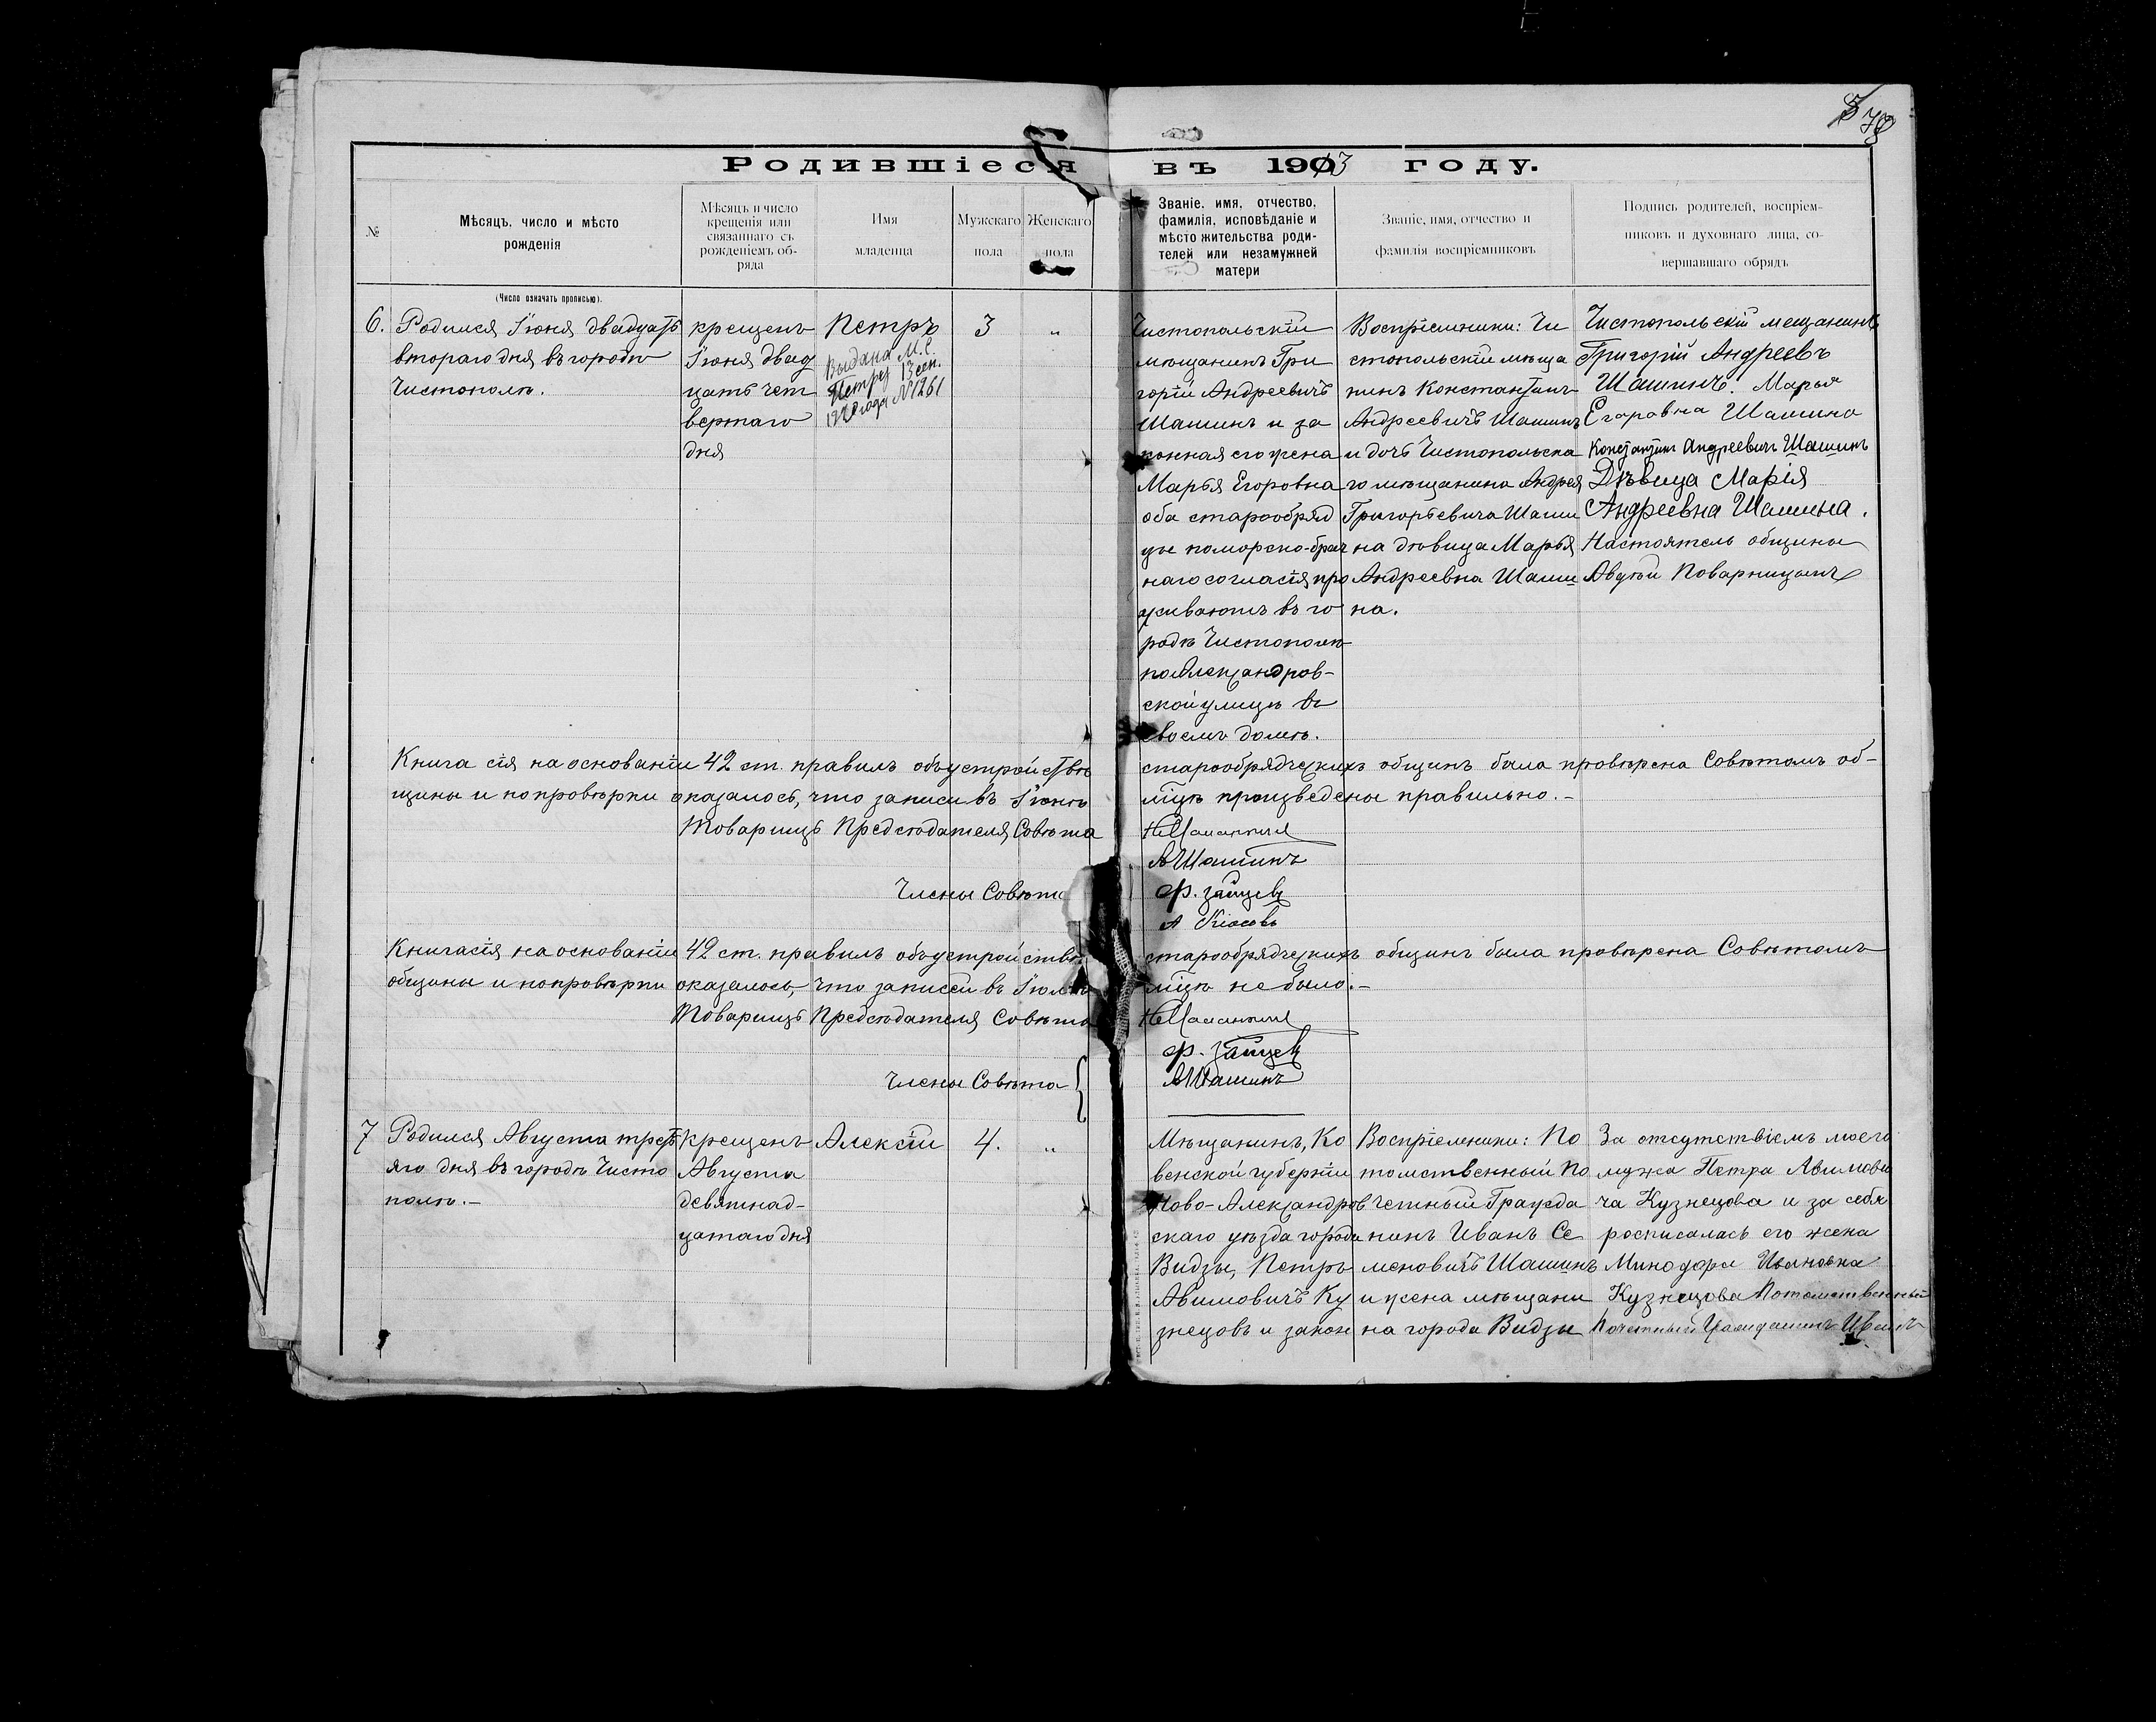 78
Родившіеся въ 1903 году.
№
Мѣсяцъ, число и мѣсто
рожденія
Мѣсяцъ и число
крещенія или
связаннаго съ
рожденіемъ об-
ряда
Имя
младенца
Мужскаго
пола
Женскаго
пола
Званіе, имя, отчество,
фамилія, исповѣданіе и
мѣсто жительства роди-
телей или незамужней
матери
Званіе, имя, отчество и
фамилія воспріемниковъ
Подпись родителей, воспріем-
никовъ и духовнаго лица, со-
вершавшаго обрядъ
(Число означать прописью).
6.
Родился Іюня двадцать
втораго дня въ городѣ
Чистополѣ.
крещенъ
Іюня двад
цать чет
вертаго
дня
Петръ
Выдана М.С.
Петру 13 сен.
года №1261
3
„
Чистопольскій
мѣщанинъ Гри
горій Андреевичъ
Шашинъ и за
конная его жена
Марья Егоровна
оба старообряд
цы поморско-брач
наго согласія про
живаютъ въ го
родѣ Чистополѣ
по Александров-
ской улицѣ въ
своемъ домѣ.
Воспріемники: Чи
стопольскій мѣща
нинъ Константинъ
Андреевичъ Шашинъ
и дочь Чистопольска
го мѣщанина Андрея
Григорьевича Шаши
на дѣвица Марья
Андреевна Шаши
на.
Чистопольскій мещанинъ
Григорій Андреевъ
Шашинъ. Марья
Егоровна Шашина
Константинъ Андреевичъ Шашинъ
Дѣвица Марія
Андреевна Шашина.
Настоятель общины
Авдѣй Поварницынъ
Книга сія на основаніи 42 ст. правилъ объ устройствѣ старообрядческихъ общинъ была провѣрена Совѣтомъ об-
щины и по провѣрки оказалось, что записи въ Іюнѣ мѣцѣ произведены правильно.-
Товарищъ Предсѣдателя Совѣта
АШашинъ
Члены Совѣта
Ф. Зайцевъ
Книга сія на основаніи 42 ст. правилъ объ устройствѣ старообрядческихъ общинъ была провѣрена Совѣтомъ
общины и по провѣрки оказалось, что записей въ Іюлѣ мѣцѣ не было.-
Товарищъ Предсѣдателя Совѣта
Ф. Зайцевъ
Члены Совѣта
АШашинъ
7
Родился Августа треть
яго дня въ городѣ Чисто
полѣ.-
Крещенъ
Августа
девятнад-
цатаго дня
Алексій
4.
„
Мѣщанинъ, Ко
венской губерніи
Ново-Александров
скаго уѣзда города
Видзы, Петръ
Авимовичъ Ку
знецовъ и закон
Воспріемники: По
томственный По
четный Гражда
нинъ Иванъ Се
меновичъ Шашинъ
и жена мѣщани
на города Видзы
За отсутствіемъ моего
мужа Петра Авимови
ча Кузнецова и за себя
росписалась его жена
Минодора Ивановна
Кузнецова Потомственный
Почетный Гражданинъ Иванъ